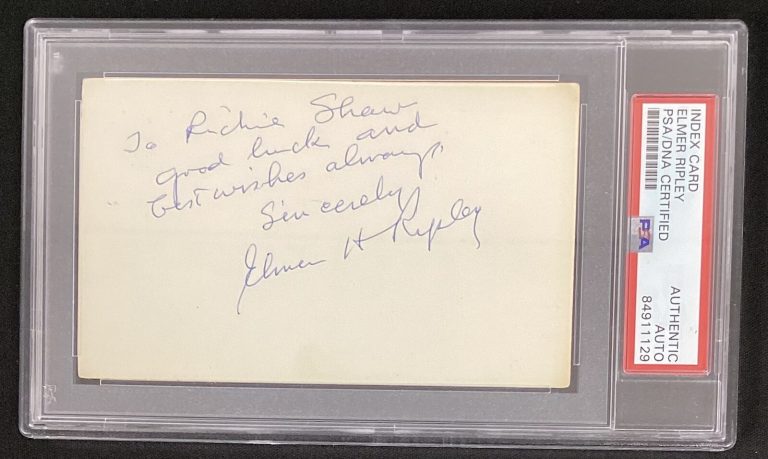 To Richie Shaw
good luck and
best wishes always.
Sincerely
Elmer H Ripley
INDEX CARD
ELMER RIPLEY
PSA/DNA CERTIFIED
PSA
AUTHENTIC
AUTO
84911129